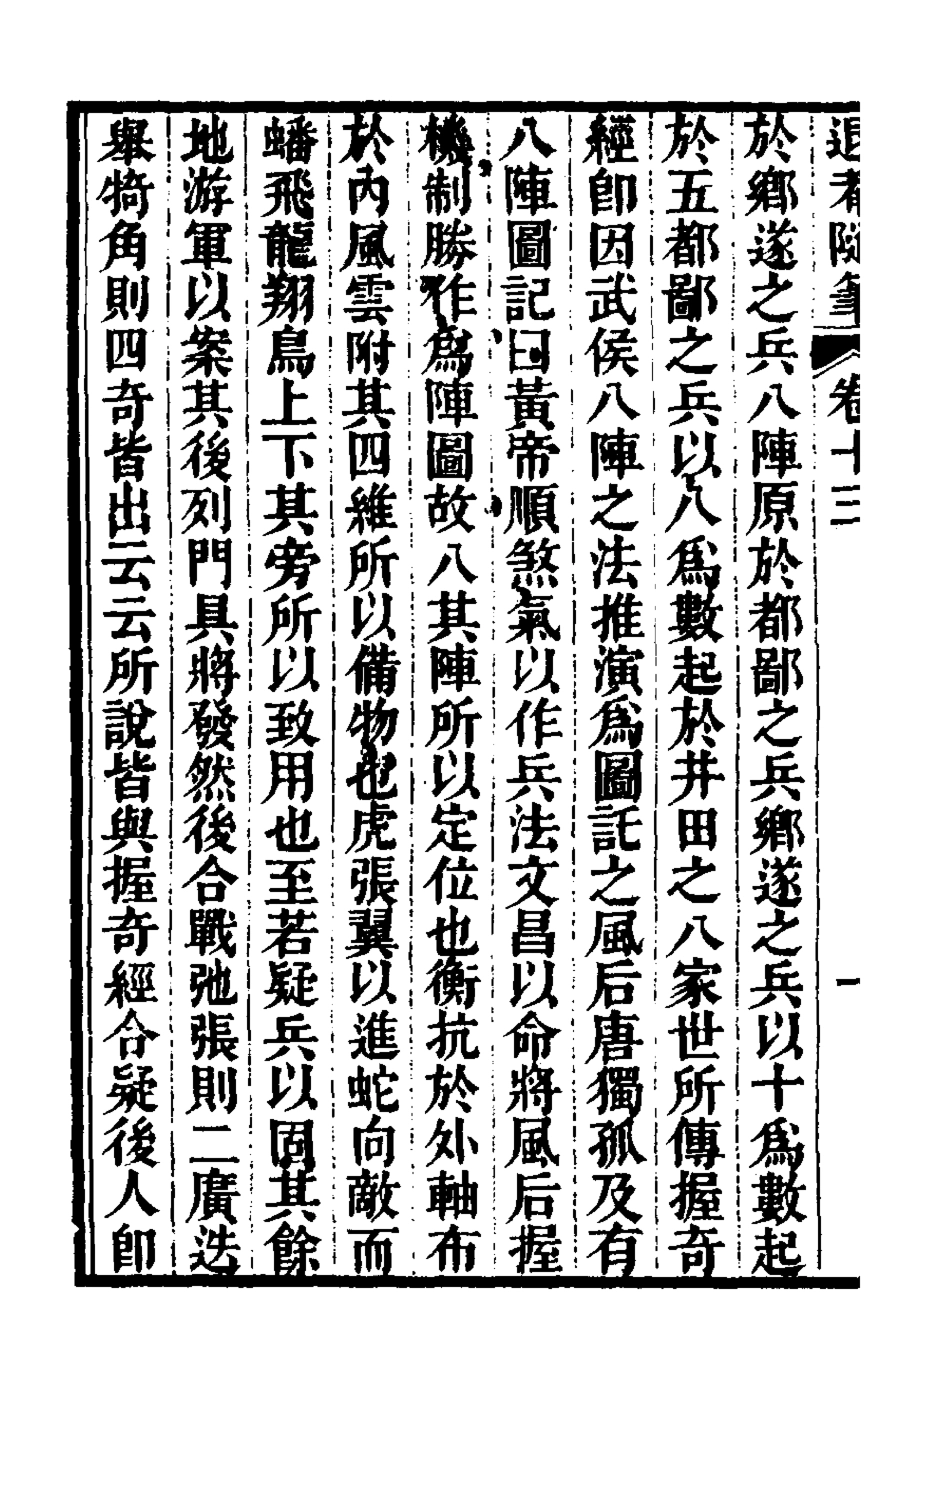 退者隨筆 卷十三 一
於鄉遂之兵八陣原於都鄙之兵鄉遂之兵以十爲數起
於五都鄙之兵以八爲數起於井田之八家世所傳握奇
經卽因武侯八陣之法推演爲圖託之風后唐獨孤及有
八陣圖記曰黃帝順煞氣以作兵法文昌以命將風后握
機制勝作爲陣圖故八其陣所以定位也衡抗於外軸布
於內風雲附其四維所以備物也虎張翼以進蛇向敵而
蟠飛龍翔鳥上下其旁所以致用也至若疑兵以固其餘
地游軍以案其後列門具將發然後合戰弛張則二廣迭
舉犄角則四奇皆出云云所說皆與握奇經合疑後人卽